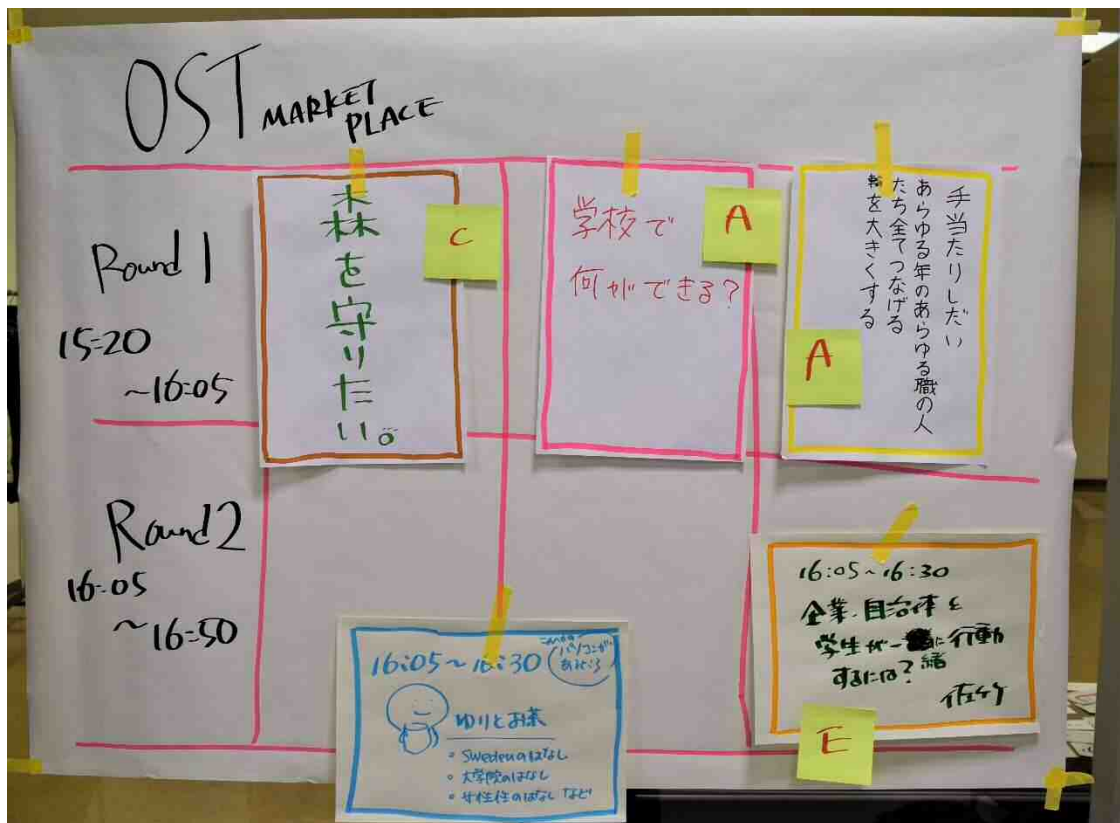 OST MARKET
PLACE
Round 1
15:20
~16:05
森を守りたい。
C
学校で
何ができる?
A
手当たりしだい
あらゆる年のあらゆる職の人
たち全てつなげる
輪を大きくする
A
Round 2
16:05
~16:50
16:05~16:30
パソコンが
あるところ
ゆりとお茶
• Swedenのはなし
• 大学院のはなし
• 女性性のはなし など
16:05~16:30
企業・自治体と
学生が一緒に行動
するには?
E